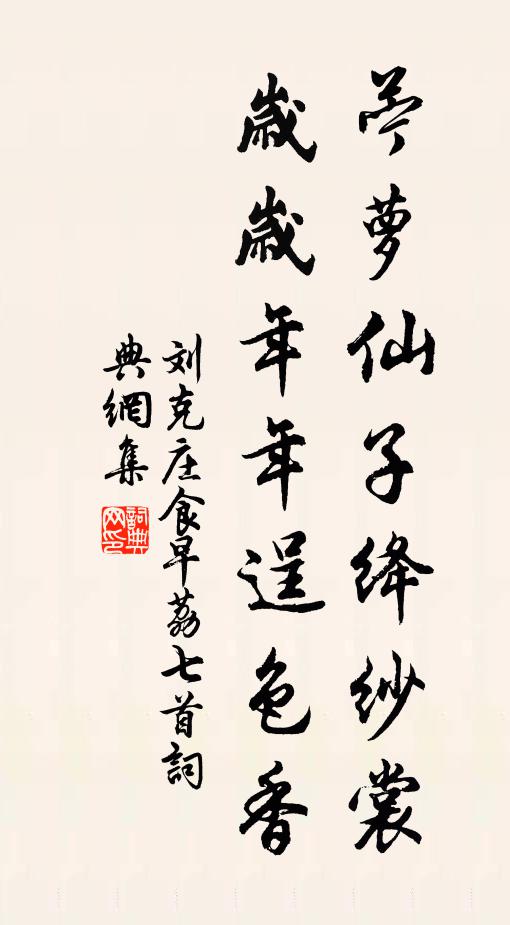 苎萝仙子絳紗裳
歲歲年年逞色香
刘克庄食早荔七首詞
典網集
詞典网印